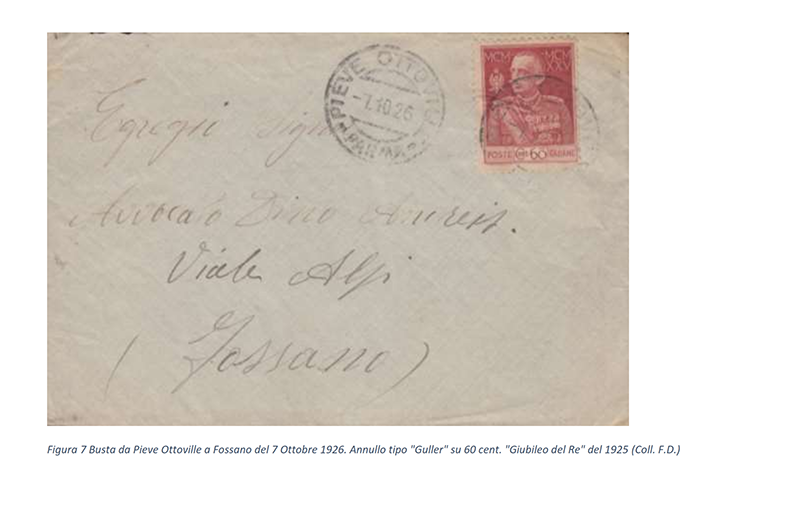 PIEVE OTTOVILLE
-7.10.26
(PARMA)
MCM XXV
POSTE Cent 60 ITALIANE
Egregio Sign
Avvocato Dino
Viale Alpi
(Fossano)
Figura 7 Busta da Pieve Ottoville a Fossano del 7 Ottobre 1926. Annullo tipo "Guller" su 60 cent. "Giubileo del Re" del 1925 (Coll. F.D.)